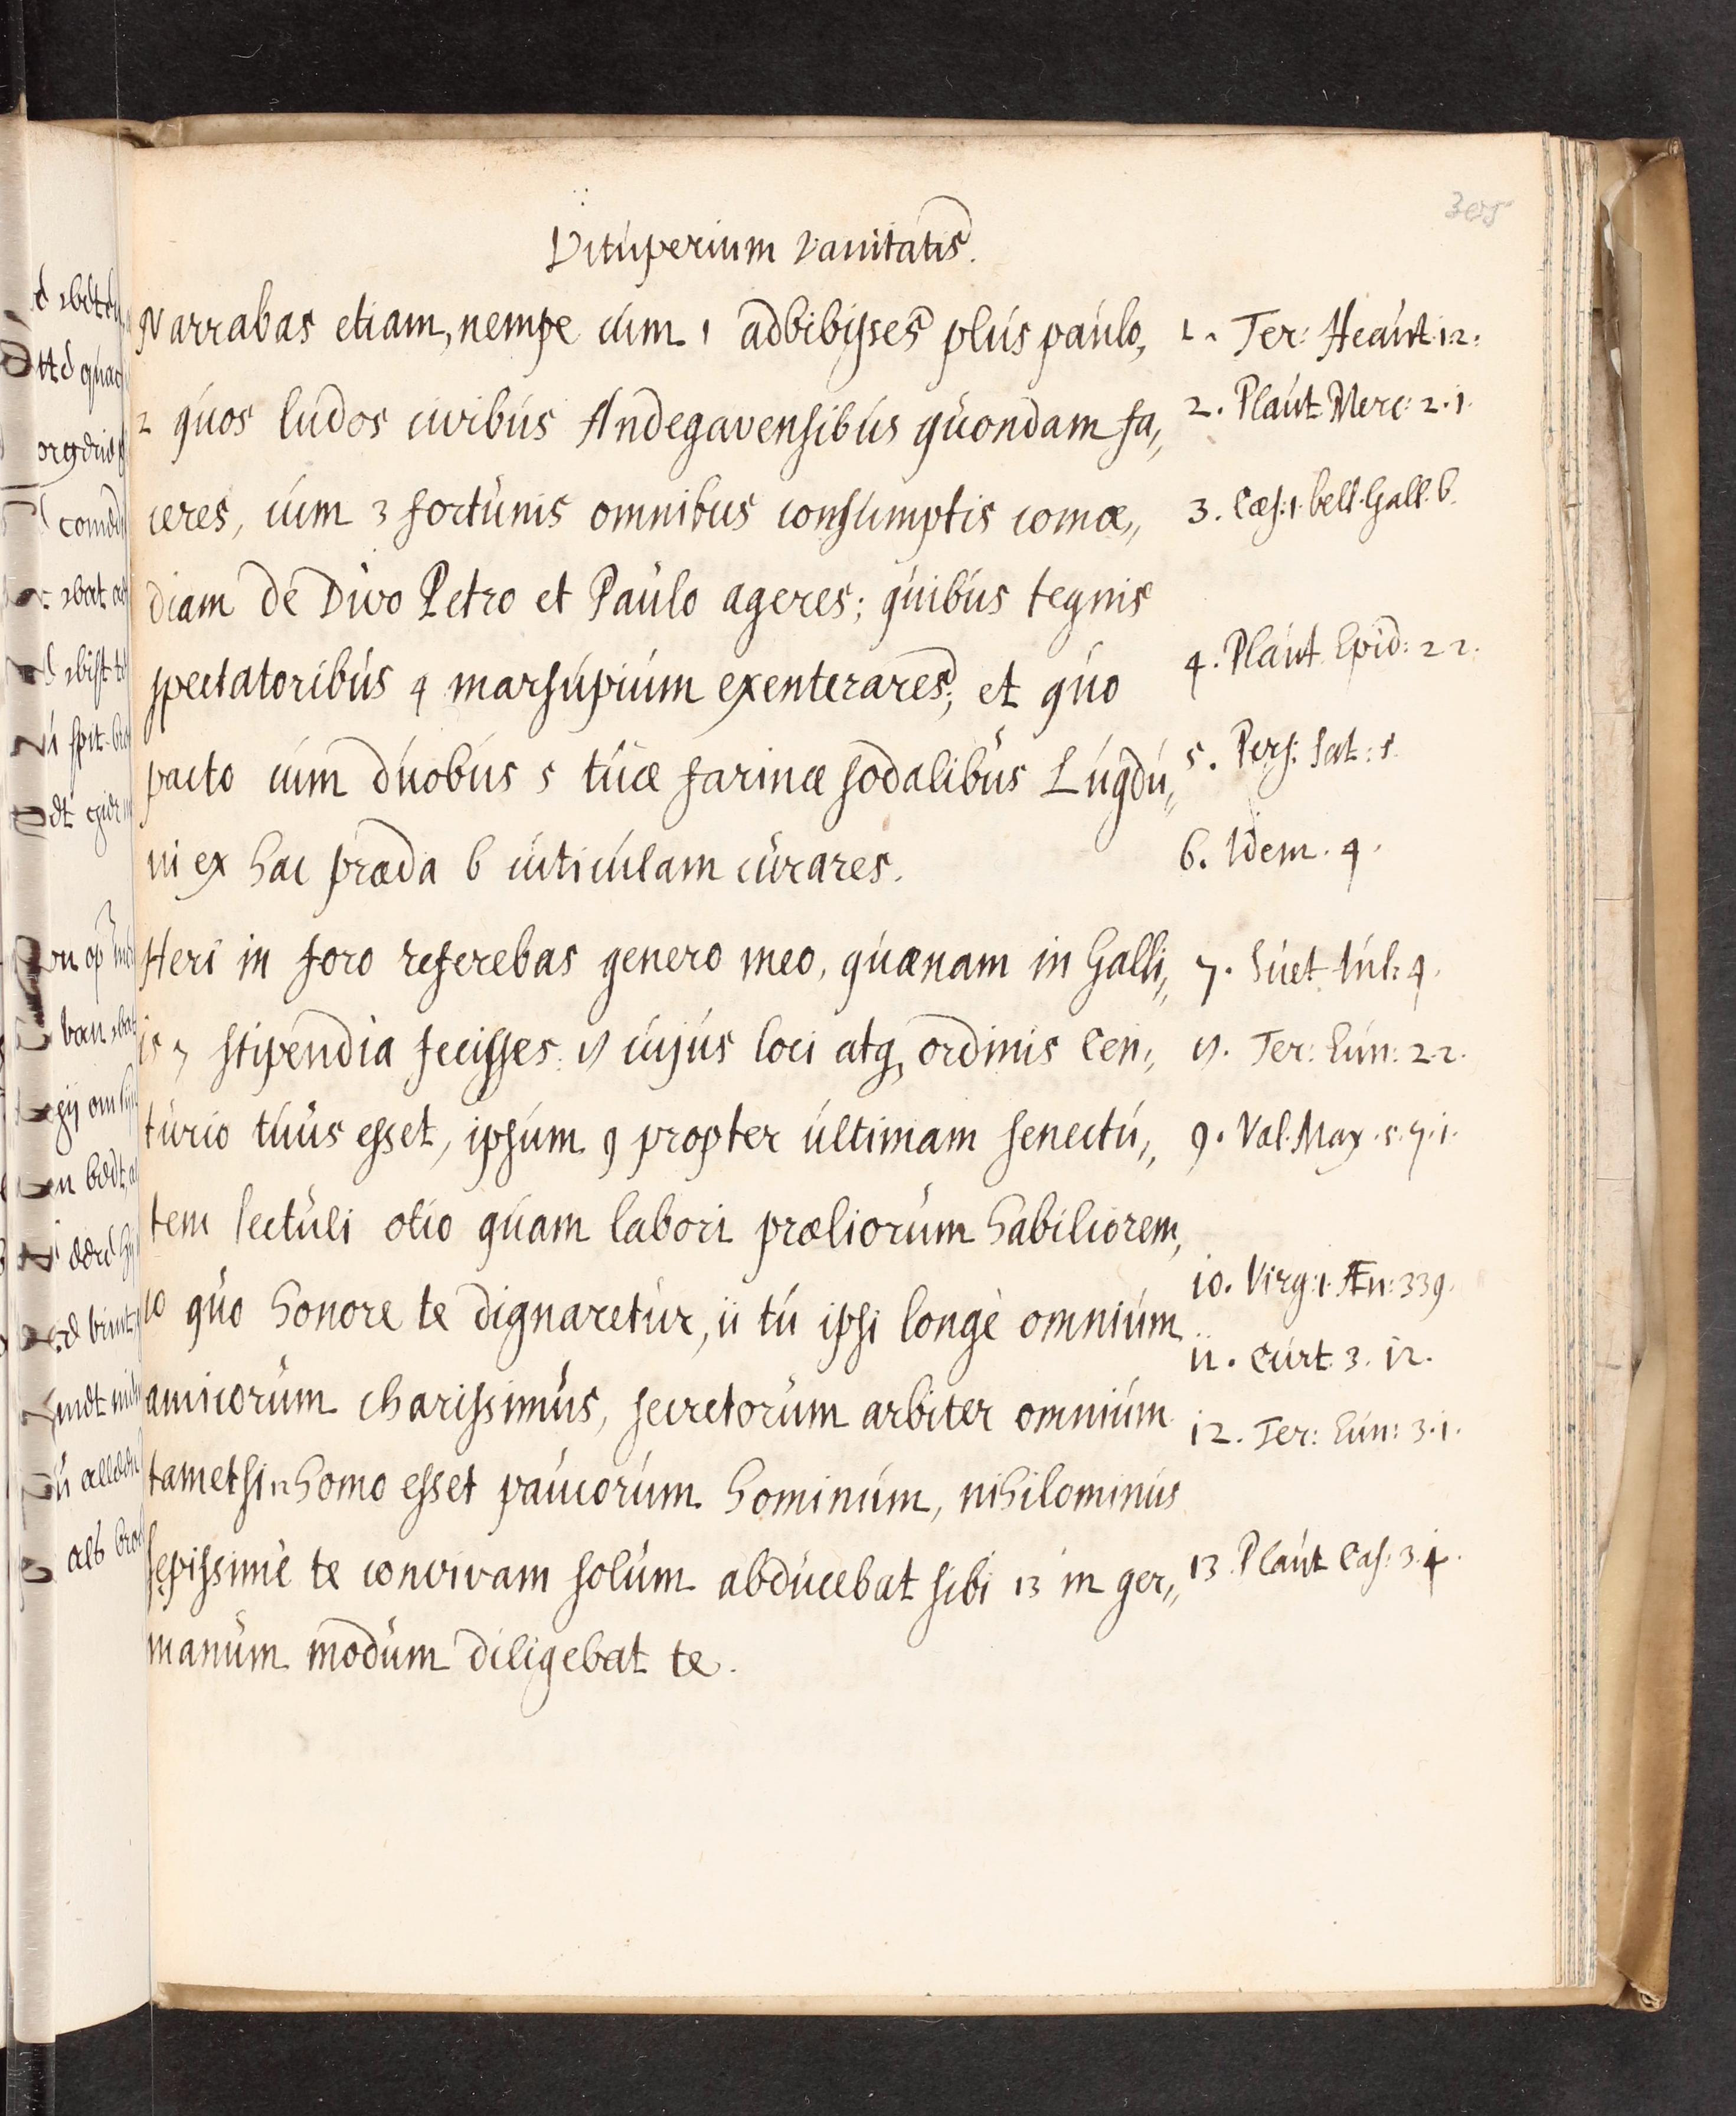 Vituperium vanitatis.
Narrabas etiam, nempe cum 1 adbibisses plus paulo,
2 quos ludos civibus Andegavensibus quondam fa,,
ceres, cum 3 fortunis omnibus consumptis comœ,,
diam de Divo Petro et Paulo ageres; quibus tegnis
spectatoribus 4 marsupium exenterares; et quo
pacto cum duobus 5 tuæ farinæ sodalibus Lugdu,,
ni ex hac præda 6 cuticulam curares.
Heri in foro referebas genero meo, quænam in Galli,,
is 7 stipendia fecisses. 8 cujus loci atq, ordinis Cen,,
turio tuus esset, ipsum 9 propter ultimam senectu,,
tem lectuli otio quam labori præliorum habiliorem,
10 quo honore te dignaretur, 11 tu ipsi longè omnium
amicorum charissimus, secretorum arbiter omnium
tametsi 12 homo esset paucorum hominum, nihilominus
sepissimè te convivam solum abducebat sibi 13 in ger,,
manum modum diligebat te.
1. Ter: Heaut. 12.
2. Plaut Merc: 2.1.
3. Cæs: 1. bell. Gall. 6.
4. Plaut Epid: 2 2.
5. Pers: Sat: 5.
6. Idem. 4.
7. Suet. Iul: 4.
8. Ter: Eun: 2.2.
9. Val. Max. 5.7.1.
10. Virg: 1. Æn: 339.
11. Curt. 3. 12.
12. Ter: Eun: 3.1.
13. Plaut Cas: 3.4.